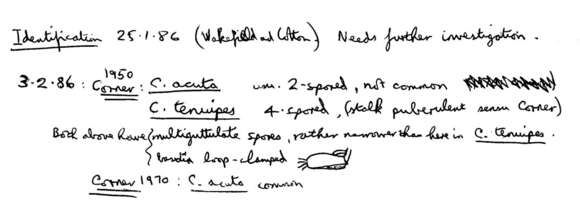 Identification 25.1.86 (Wakefield and Cotton) Needs further investigation.
3.2.86: Corner 1950: C. acuta usu. 2-spored, not common
C. tenuipes 4-spored, (stalk puberulent sensu Corner)
Both above have { multiguttulate spores, rather narrower than here in C. tenuipes.
{ basidia loop-clamped
Corner 1970: C. acuta common